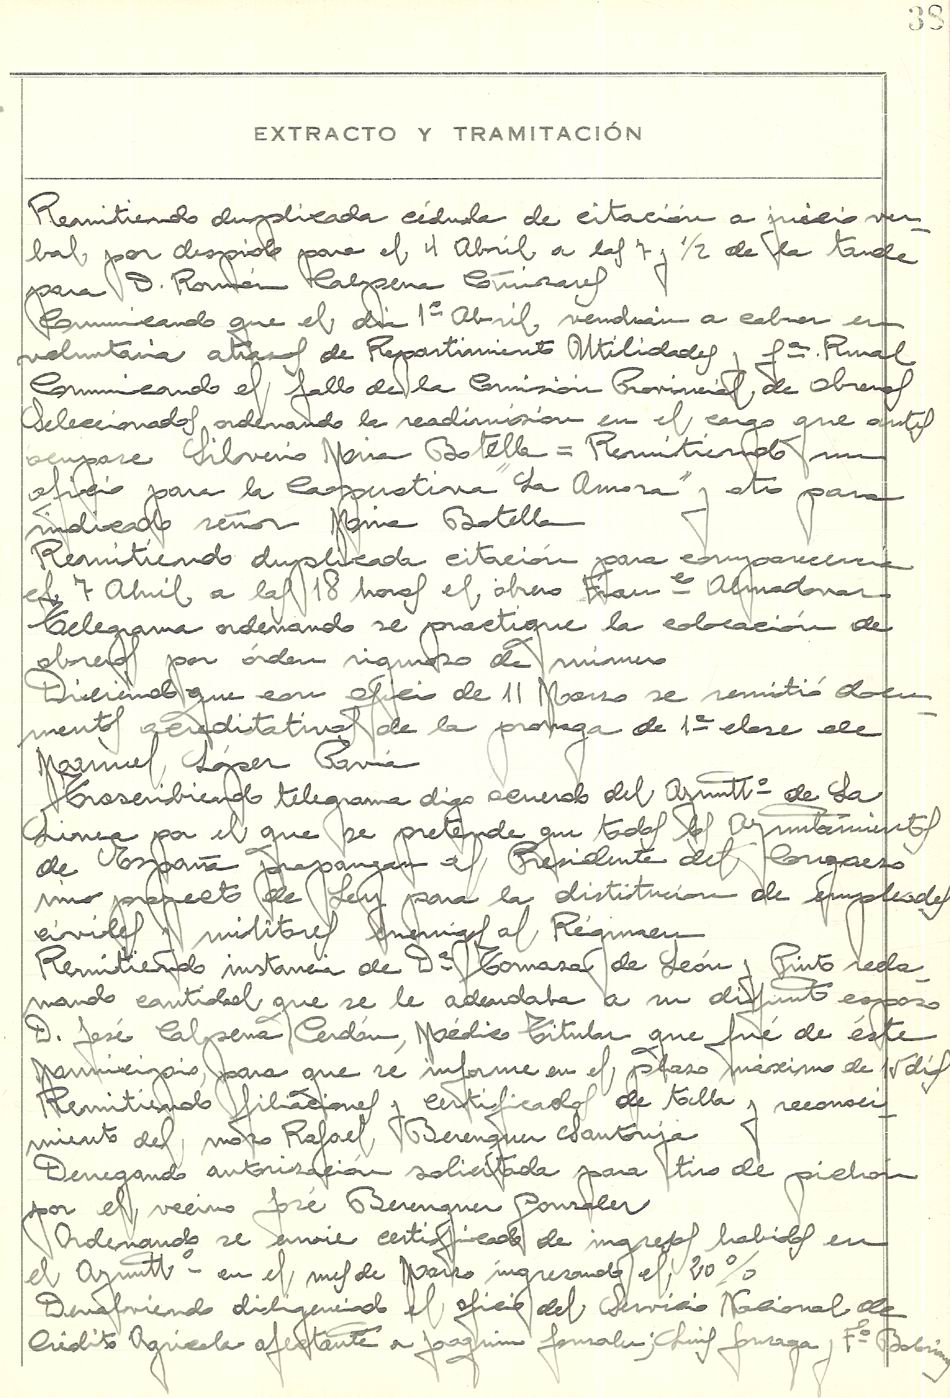 38
EXTRACTO Y TRAMITACIÓN
Remitiendo duplicada cédula de citación a juicio ver-
bal por despido para el 4 Abril a las 7 y 1/2 de la tarde
para D. Román Calpena Cañizares
Comunicando que el dia 1º Abril vendrán a cobrar en
voluntaria atrasos de Repartimiento Utilidades y gª. Rural
Comunicando el fallo de la Comisión Provincial de obreros
Seleccionados ordenando la readimisión en el cargo que antes
ocupase Silverio Maria Botella = Remitiendo un
oficio para la Cooperativa "La Amora" y otro para
indicado señor Maria Botella
Remitiendo duplicada citación para comparecencia
el 7 Abril a las 18 horas el obrero Franco Almadovar
Telegrama ordenando se practique la colocación de
obreros por órden riguroso de número
Diciendo que con oficio de 11 Marzo se remitió docu-
mentos acreditativos de la prorroga de 1ª clase de
Manuel López Pavia
Trascribiendo telegrama digo acuerdo del Ayunttº de La
Linea por el que se pretende que todos los Ayuntamientos
de España propongan al Presidente del Congreso
un proyecto de Ley para la distitución de empleados
civiles y militares enemigos al Régimen
Remitiendo instancia de Dª Tomasa de León y Pinto recla-
mando cantidad que se le adeudaba a su difunto esposo
D. José Calpena Cerdán, Médico Titular que fué de éste
Municipio, para que se informe en el plazo máximo de 15 dias
Remitiendo filiaciones y certificados de talla y reconoci-
miento del mozo Rafael Berenguer Santonja
Denegando autorización solicitada para tiro de pichón
por el vecino José Berenguer Gonzalez
Ordenando se envie certificado de ingresos habidos en
el Ayunttº en el mes de Marzo ingresando el 20%
Devolviendo diligenciado el oficio del Servicio Nacional de
Crédito Agricola afectante a Joaquin Gonzalez; Luis Gonzaga y Fº